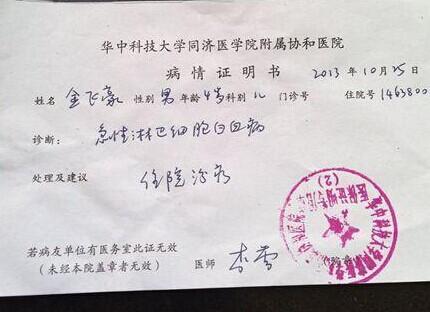 华中科技大学同济医学院附属协和医院
病情证明书 2013 年 10 月 25 日
姓名 金飞豪 性别 男 年龄 4岁 科别 儿 门诊号 住院号 1463800
诊断： 急性淋巴细胞白血病
处理及建议 住院治疗
若病友单位有医务室此证无效
（未经本院盖章者无效） 医师 李雪
(2)